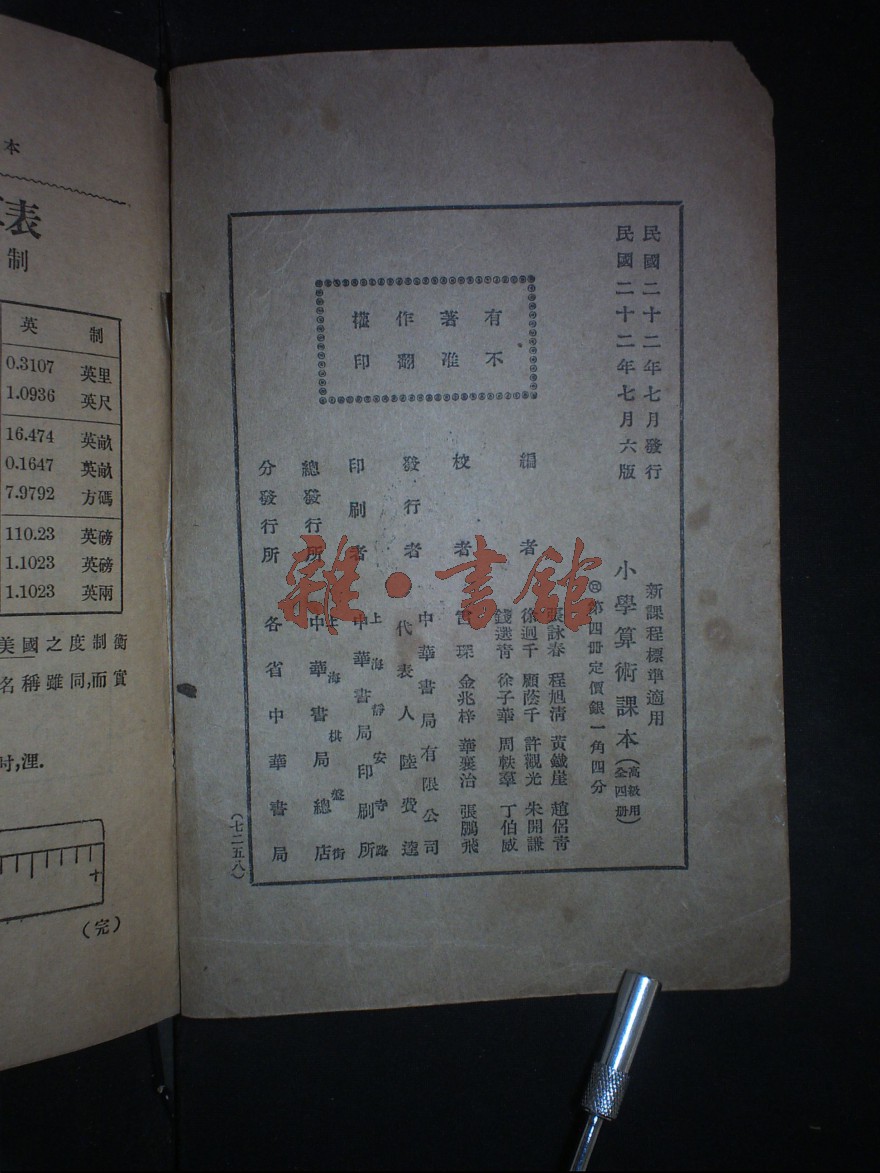 民國二十二年七月發行
民國二十二年七月六版
新課程標準適用
小學算術課本（高級用 全四册）
第四册定價銀一角四分
編者
張詠春 程旭清 黃鐵崖 趙侶靑
徐迥千 顧蔭千 許觀光 朱開謙
錢選青 徐子華 周軼羣 丁伯威
校者
雷琛 金兆梓 華襄治 張鵬飛
發行者
中華書局有限公司
代表人 陸費逵
印刷者
上海靜安寺路
中華書局印刷所
總發行所
上海棋盤街
中華書局總店
分發行所
各省中華書局
有著作權
不准翻印
（七二五八）
雜·書館
本
表
制
英制
0.3107 英里
1.0936 英尺
16.474 英畝
0.1647 英畝
7.9792 方碼
110.23 英磅
1.1023 英磅
1.1023 英兩
美國之度制衡
名稱雖同,而實
吋,浬.
(完)